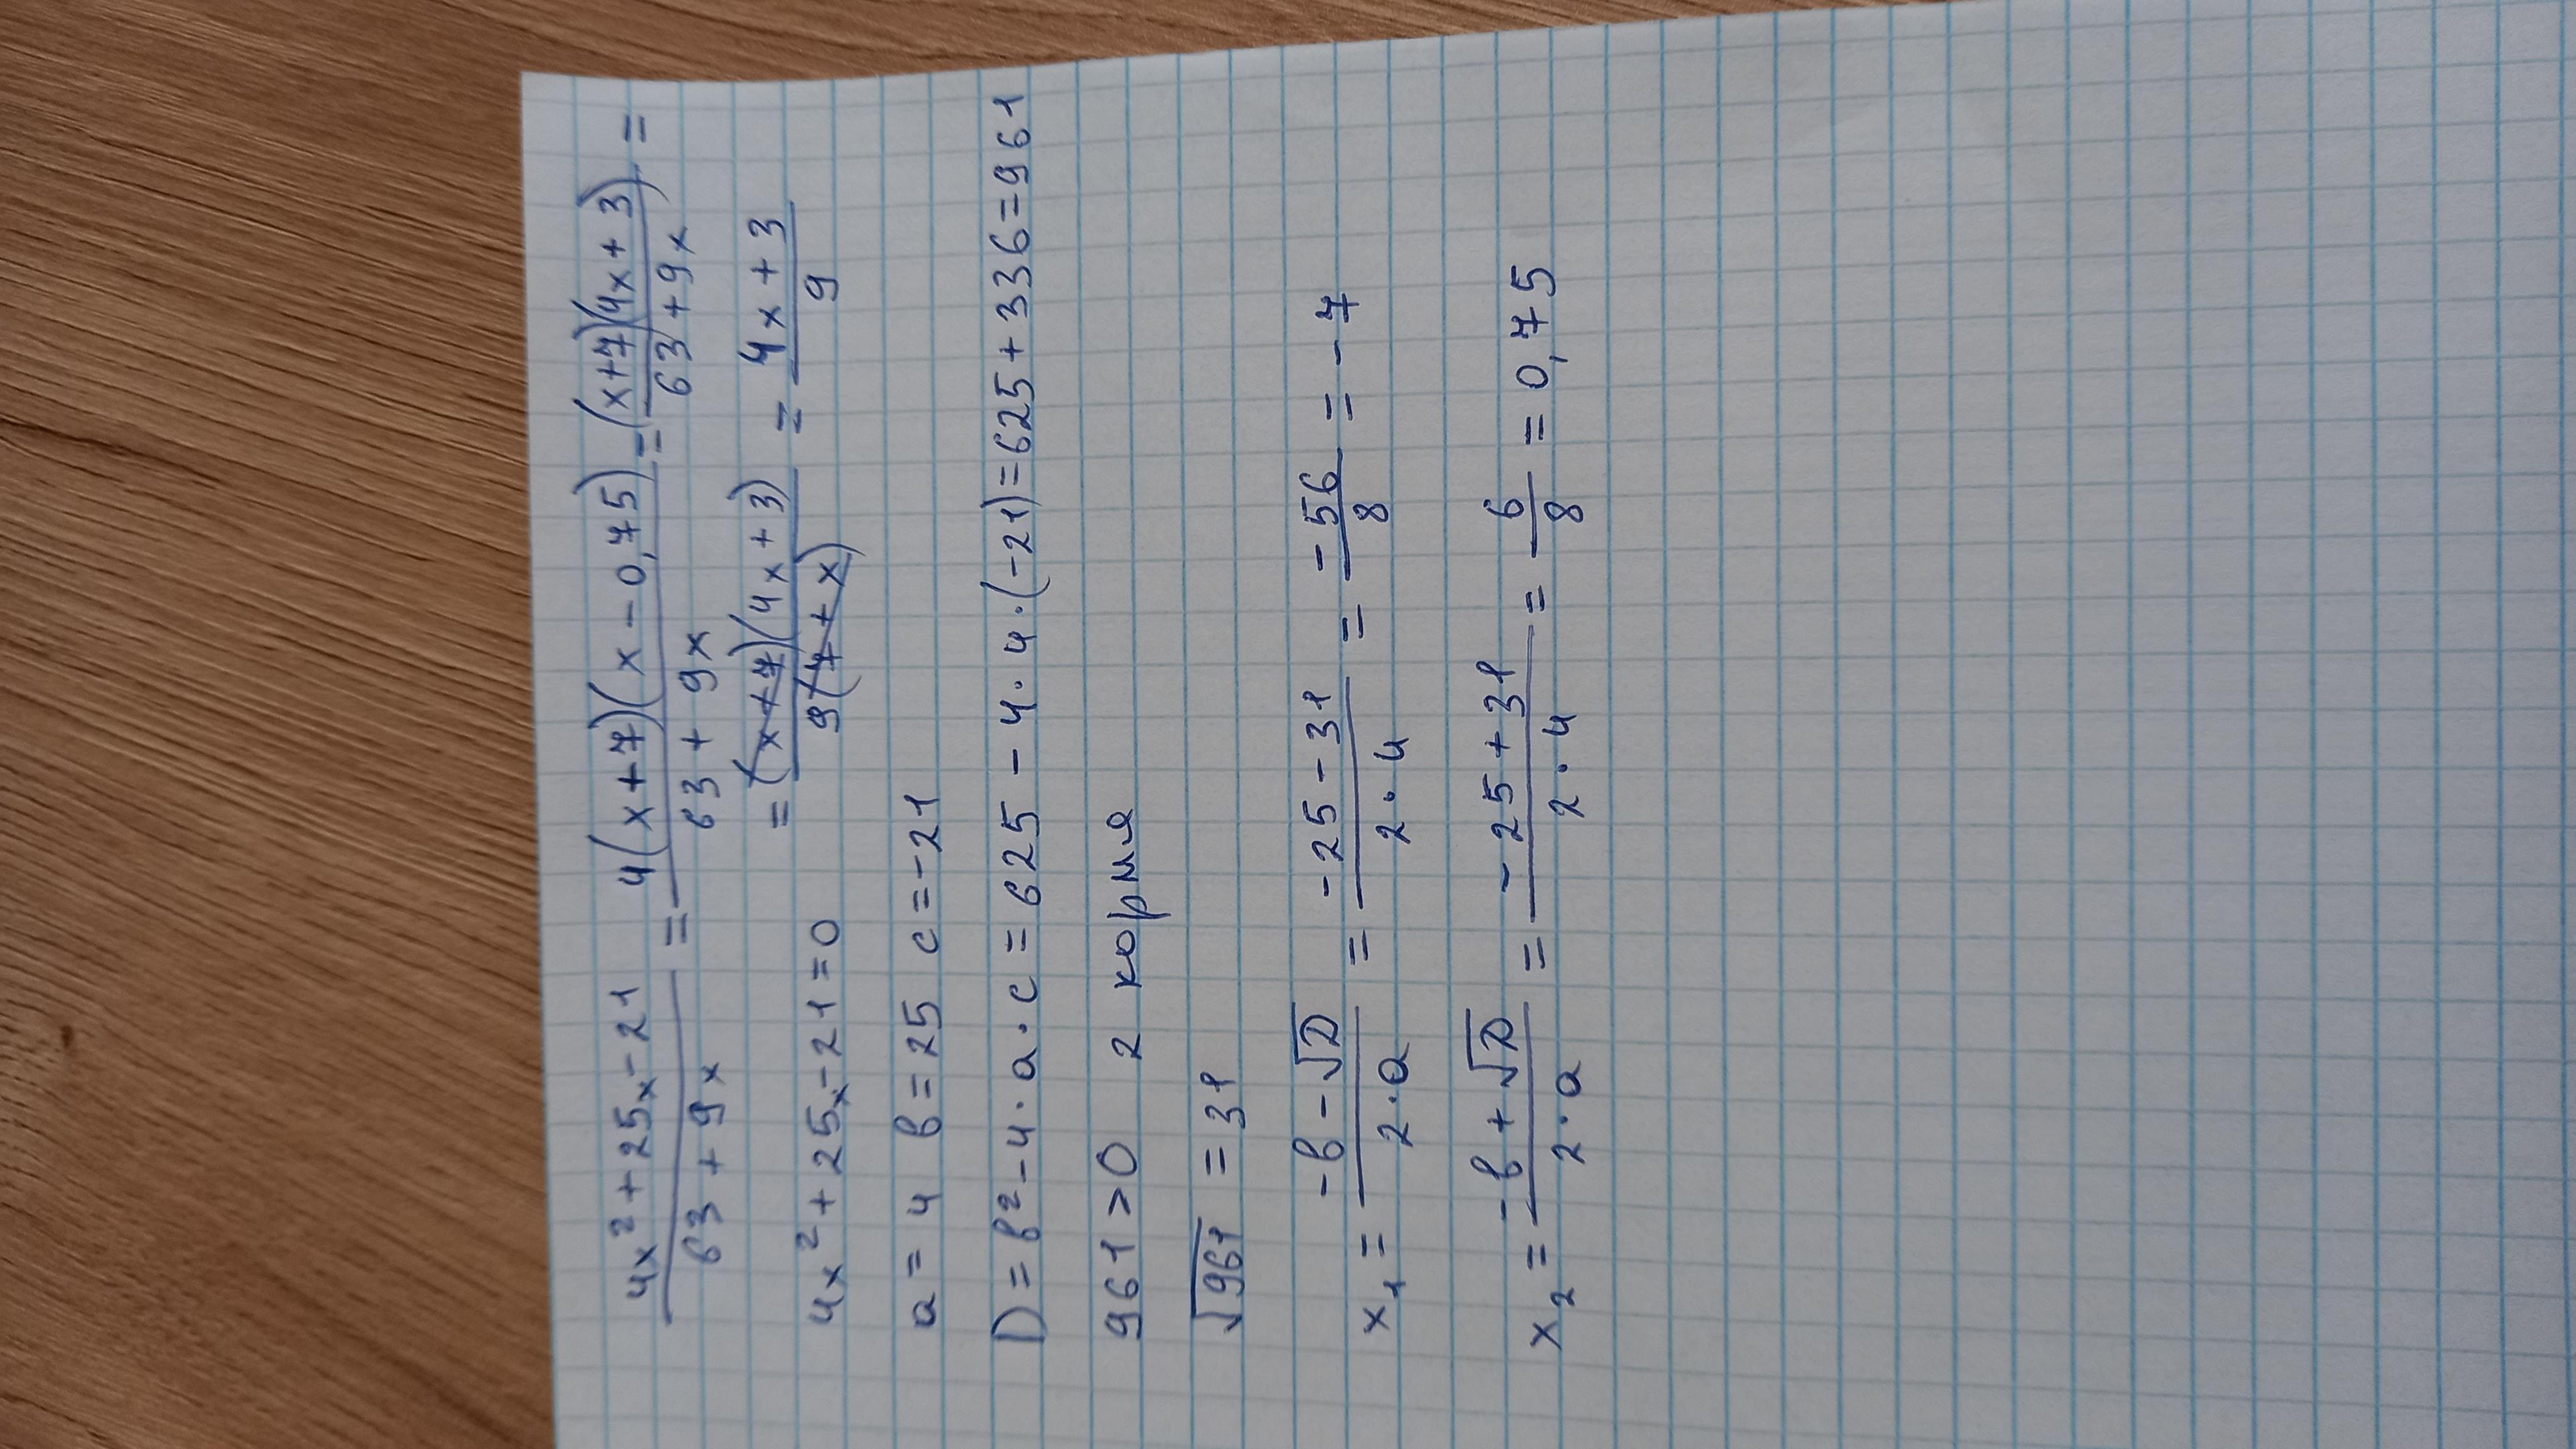 (4x² + 25x - 21)/(63 + 9x) = 4(x+7)(x - 0,75)/(63 + 9x) = (x+7)(4x+3)/(63+9x) =
= (x+7)(4x+3)/(9(7+x)) = (4x+3)/9
4x² + 25x - 21 = 0
a = 4 в = 25 c = -21
D = в² - 4 · a · c = 625 - 4 · 4 · (-21) = 625 + 336 = 961
961 > 0 2 корня
√961 = 31
x₁ = (-в - √D)/(2·a) = (-25 - 31)/(2·4) = -56/8 = -7
x₂ = (-в + √D)/(2·a) = (-25 + 31)/(2·4) = 6/8 = 0,75